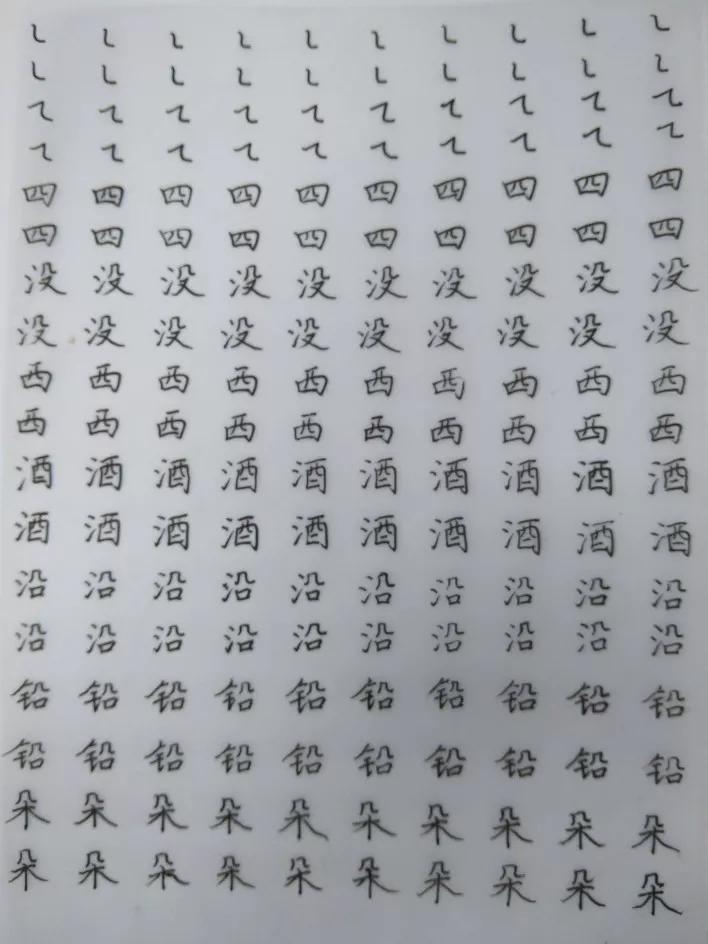 ㇄ ㇄ ㇄ ㇄ ㇄ ㇄ ㇄ ㇄ ㇄ ㇄
㇄ ㇄ ㇄ ㇄ ㇄ ㇄ ㇄ ㇄ ㇄ ㇄
㇍ ㇍ ㇍ ㇍ ㇍ ㇍ ㇍ ㇍ ㇍ ㇍
㇍ ㇍ ㇍ ㇍ ㇍ ㇍ ㇍ ㇍ ㇍ ㇍
四 四 四 四 四 四 四 四 四 四
四 四 四 四 四 四 四 四 四 四
没 没 没 没 没 没 没 没 没 没
没 没 没 没 没 没 没 没 没 没
西 西 西 西 西 西 西 西 西 西
西 西 西 西 西 西 西 西 西 西
酒 酒 酒 酒 酒 酒 酒 酒 酒 酒
酒 酒 酒 酒 酒 酒 酒 酒 酒 酒
沿 沿 沿 沿 沿 沿 沿 沿 沿 沿
沿 沿 沿 沿 沿 沿 沿 沿 沿 沿
铅 铅 铅 铅 铅 铅 铅 铅 铅 铅
铅 铅 铅 铅 铅 铅 铅 铅 铅 铅
朵 朵 朵 朵 朵 朵 朵 朵 朵 朵
朵 朵 朵 朵 朵 朵 朵 朵 朵 朵